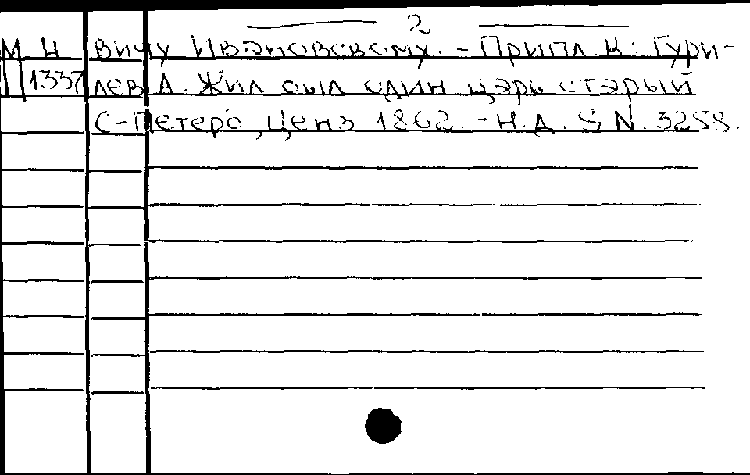 2
М Н вичу Ивановскому. - Припл. к: Гури-
1337 лев А. Жил был один царь старый
С-Петерб, Ценз 1862 - Н.Д. S N. 3258.